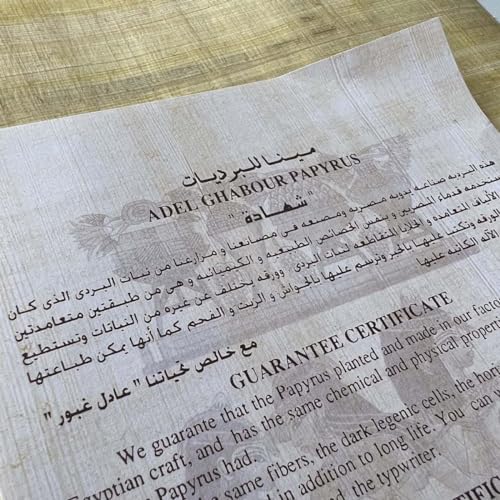 مينا للبرديات
ADEL GHABOUR PAPYRUS
" شهادة "
هذه البرديه صناعه يدويه مصريه ومصنعه فى مصانعنا و مزارعنا من نبات البردى الذى كان
قدماء المصريين و بنفس الخصائص الطبيعيه و الكيميائيه و هى من طبقتين متعامدتين
الألياف المتعامده و الخلايا لنبات البردى . وورقه يختلف عن غيره من النباتات وتستطيع
وتكتبا عليها بالحبر وترسم عليها بالجواش و الزيت و الفحم كما أنها يمكن طباعتها
الآله الكاتبه عليها
مع خالص تحياتنا " عادل غبور "
GUARANTEE CERTIFICATE
We guarante that the Papyrus planted and made in our
Egyptian craft, and has the same chemical and physical
Papyrus had.
same fibers, the dark legenic cells, the
in addition to long life. You can
the typewriter.